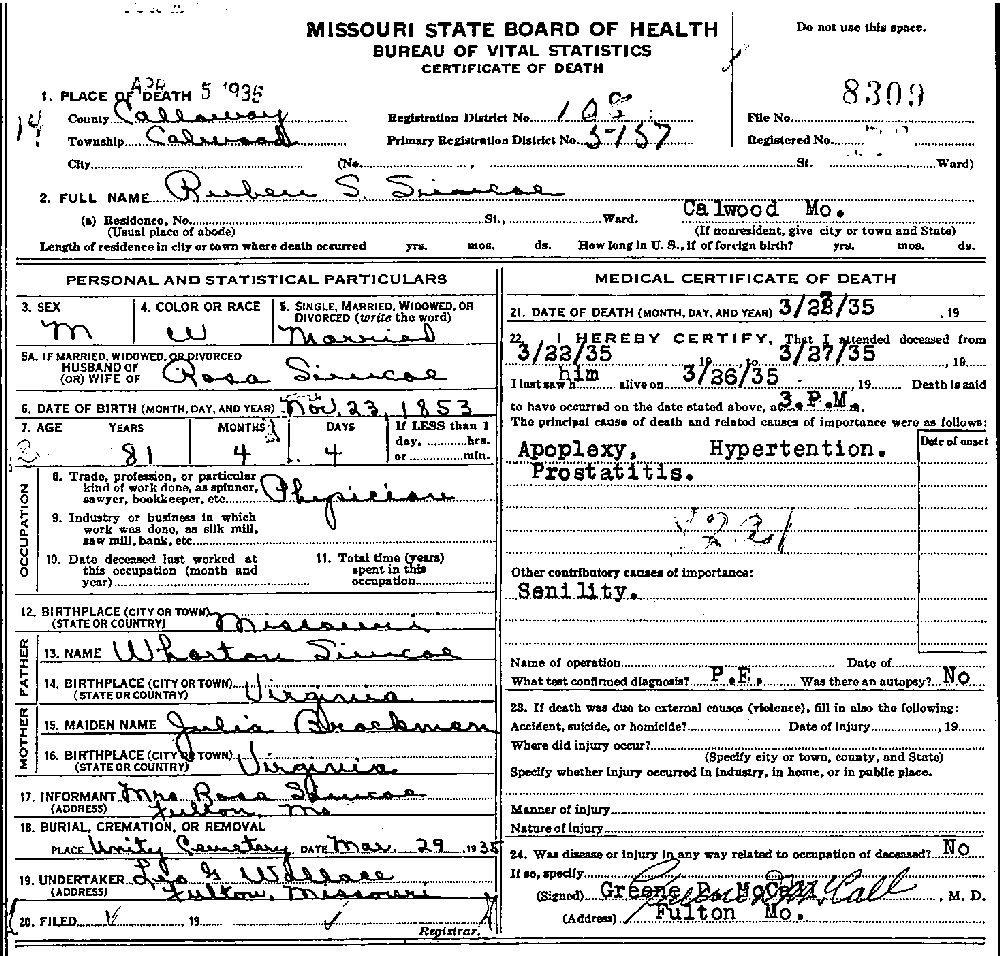 MISSOURI STATE BOARD OF HEALTH
Do not use this space.
BUREAU OF VITAL STATISTICS
CERTIFICATE OF DEATH
1. PLACE OF DEATH APR 5 1935
8309
14 County Callaway Registration District No. 108 File No.
Township Calwood Primary Registration District No. 5157 Registered No.
City (No. St. Ward)
2. FULL NAME Ruben S. Simcoe
(a) Residence, No. St., Ward. Calwood Mo.
(Usual place of abode) (If nonresident, give city or town and State)
Length of residence in city or town where death occurred yrs. mos. ds. How long in U. S., if of foreign birth? yrs. mos. ds.
PERSONAL AND STATISTICAL PARTICULARS
3. SEX M
4. COLOR OR RACE W
5. SINGLE, MARRIED, WIDOWED, OR DIVORCED (write the word) Married
5A. IF MARRIED, WIDOWED, OR DIVORCED
HUSBAND OF
(OR) WIFE OF Rosa Simcoe
6. DATE OF BIRTH (MONTH, DAY, AND YEAR) Nov. 23, 1853
7. AGE YEARS MONTHS DAYS If LESS than 1
day, hrs.
81 4 4 or min.
OCCUPATION
8. Trade, profession, or particular
kind of work done, as spinner,
sawyer, bookkeeper, etc. Physician
9. Industry or business in which
work was done, as silk mill,
saw mill, bank, etc.
10. Date deceased last worked at
this occupation (month and
year)
11. Total time (years)
spent in this
occupation
12. BIRTHPLACE (CITY OR TOWN)
(STATE OR COUNTRY) Missouri
FATHER
13. NAME Wharton Simcoe
14. BIRTHPLACE (CITY OR TOWN)
(STATE OR COUNTRY) Virginia
MOTHER
15. MAIDEN NAME Julia Brockman
16. BIRTHPLACE (CITY OR TOWN)
(STATE OR COUNTRY) Virginia
17. INFORMANT Mrs Rosa Simcoe
(ADDRESS) Fulton, Mo
18. BURIAL, CREMATION, OR REMOVAL
PLACE Unity Cemetery DATE Mar. 29 1935
19. UNDERTAKER Leo G Wallace
(ADDRESS) Fulton, Missouri
20. FILED 19
Registrar.
MEDICAL CERTIFICATE OF DEATH
21. DATE OF DEATH (MONTH, DAY, AND YEAR) 3/28/35 , 19
22. I HEREBY CERTIFY, That I attended deceased from
3/22/35 19 to 3/27/35 , 19
I last saw him alive on 3/26/35 , 19 Death is said
to have occurred on the date stated above, at 3.P.M.
The principal cause of death and related causes of importance were as follows:
Date of onset
Apoplexy, Hypertention.
Prostatitis.
Other contributory causes of importance:
Senility.
Name of operation Date of
What test confirmed diagnosis? P.E. Was there an autopsy? No
23. If death was due to external causes (violence), fill in also the following:
Accident, suicide, or homicide? Date of injury , 19
Where did injury occur?
(Specify city or town, county, and State)
Specify whether injury occurred in industry, in home, or in public place.
Manner of injury
Nature of injury
24. Was disease or injury in any way related to occupation of deceased? No
If so, specify
(Signed) Greene D. McCall , M. D.
(Address) Fulton Mo.